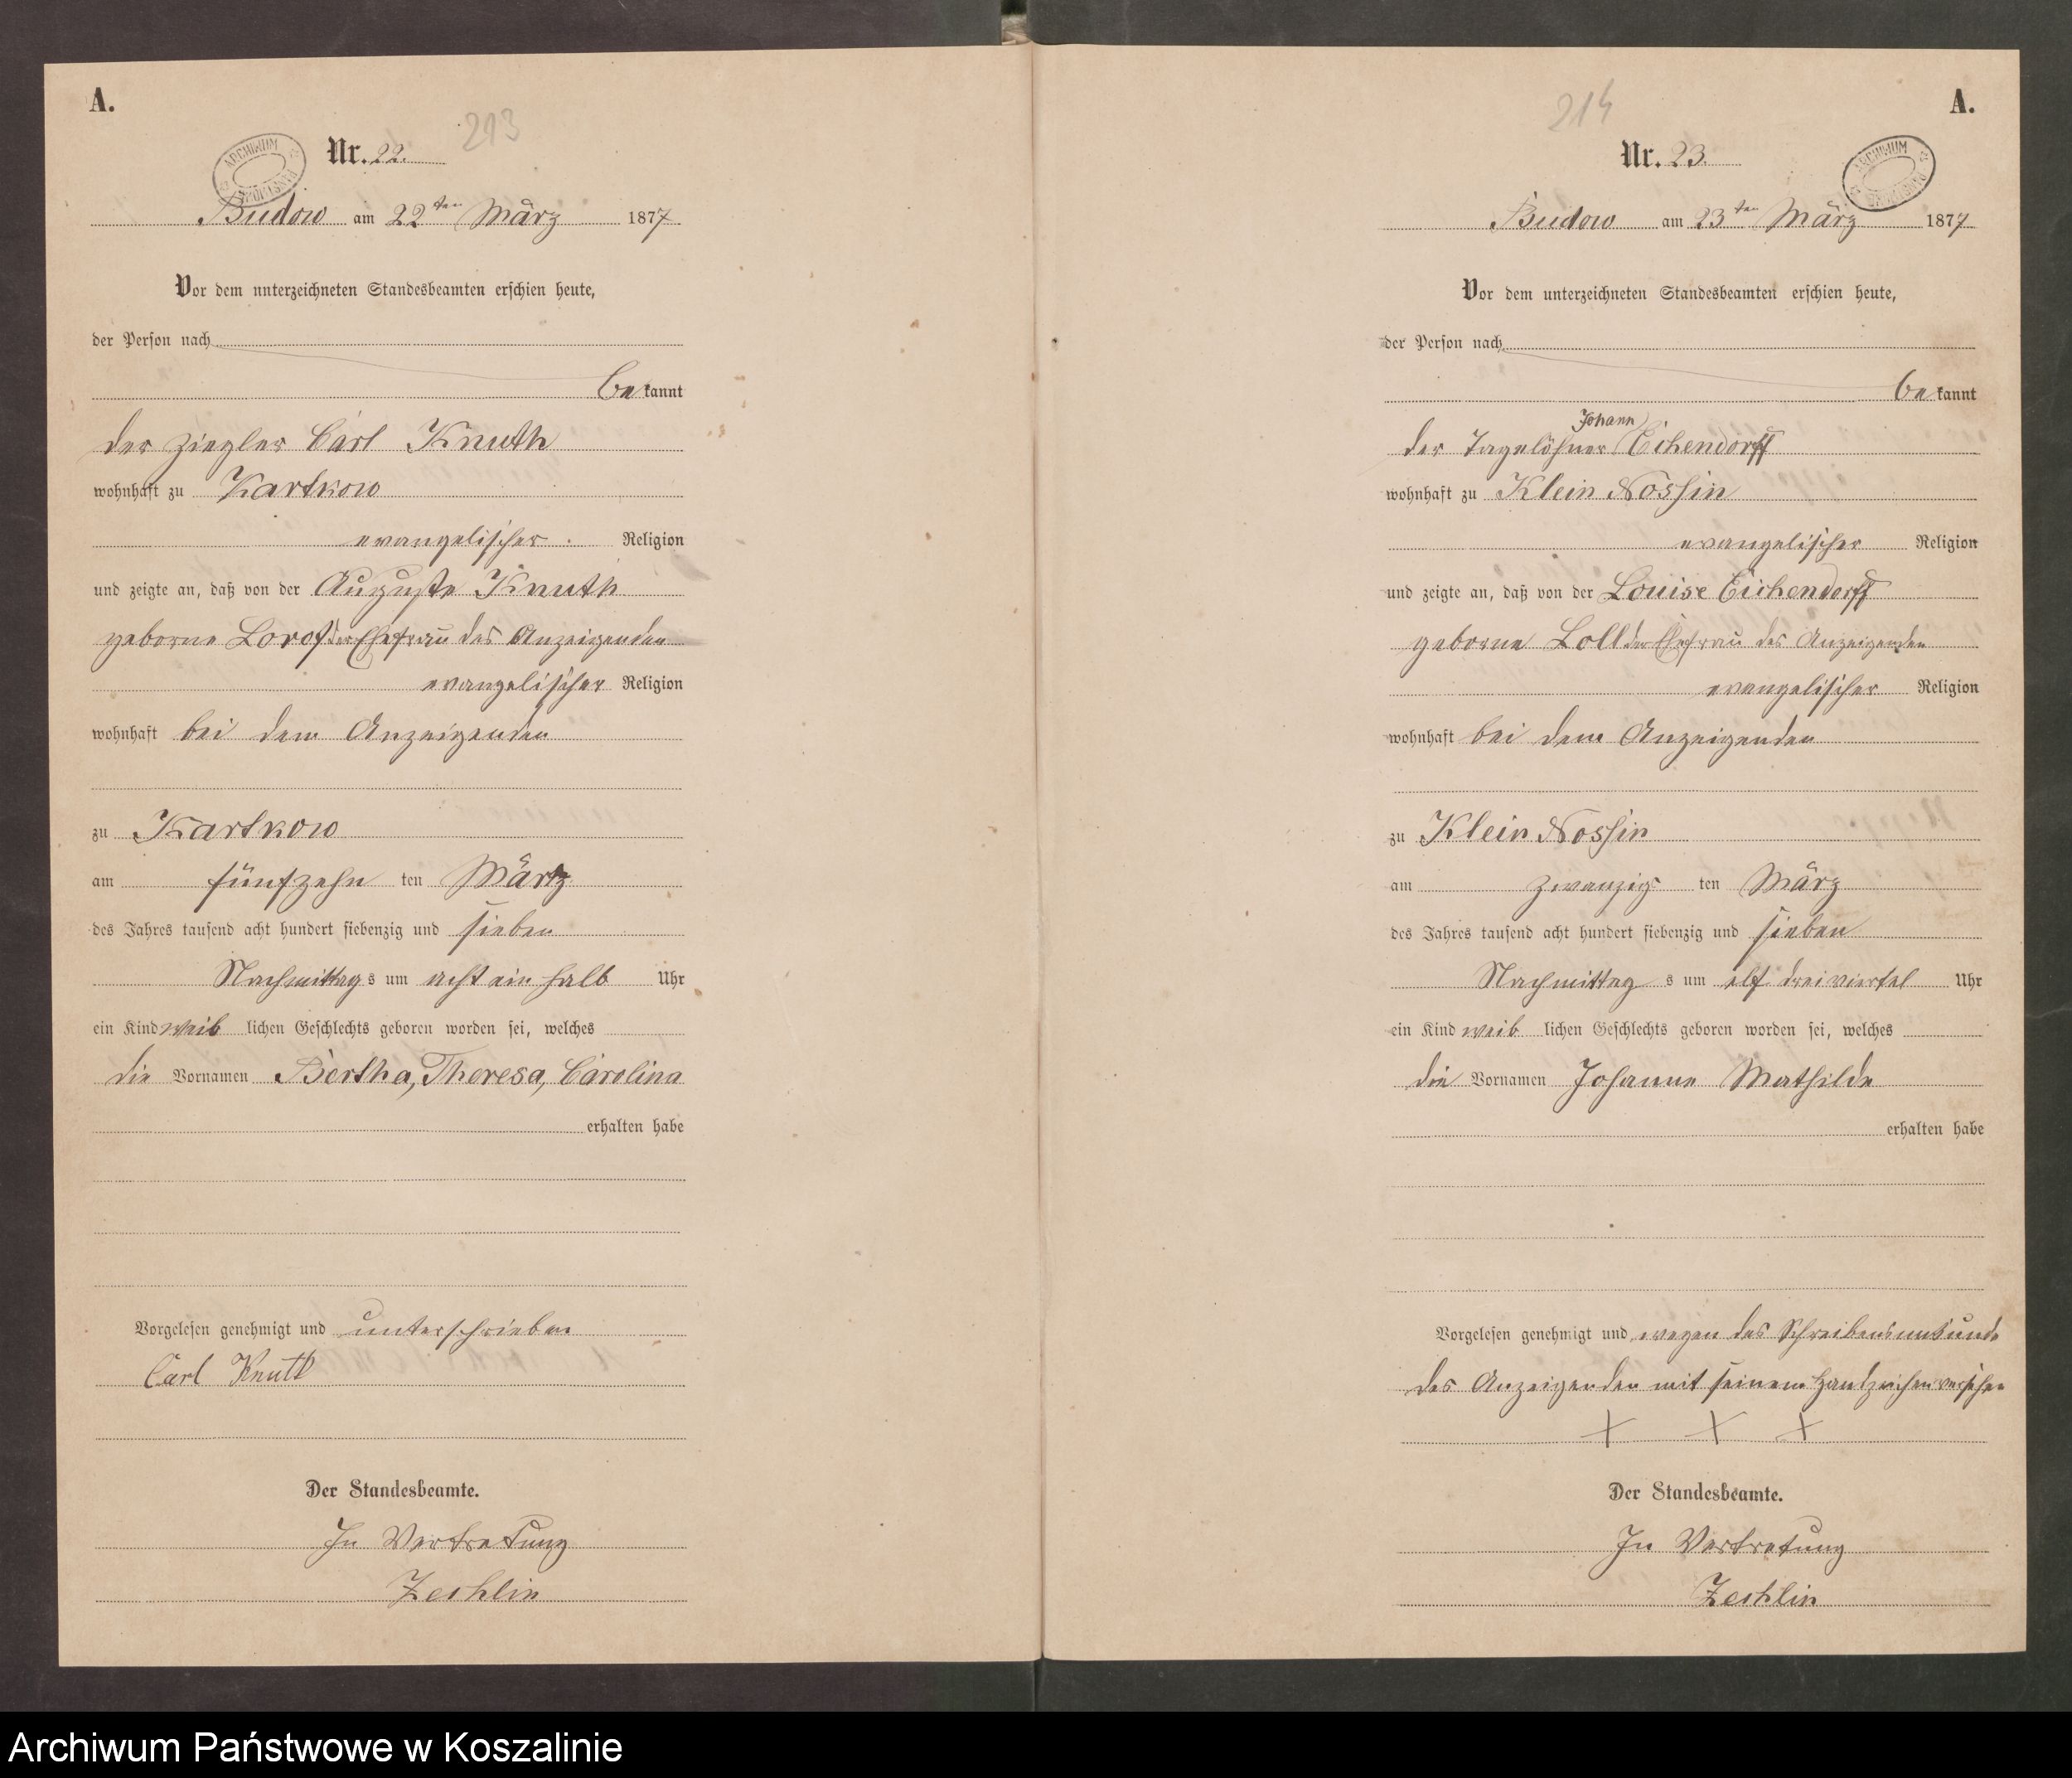 A.
213
Nr. 22.
ARCHIWUM
Budow am 22ten März 1877
Vor dem unterzeichneten Standesbeamten erschien heute,
der Person nach
bekannt
der Ziegler Carl Knuth
wohnhaft zu Kartkow
evangelischer Religion
und zeigte an, daß von der Auguste Knuth
geborne der Ehefrau des Anzeigenden
evangelischer Religion
wohnhaft bei dem Anzeigenden
zu Kartkow
am fünfzehn ten März
des Jahres tausend acht hundert siebenzig und sieben
Nachmittags um acht ein halb Uhr
ein Kind weiblichen Geschlechts geboren worden sei, welches
die Vornamen Bertha, Theresa, Carolina
erhalten habe
Vorgelesen genehmigt und unterschrieben
Carl Knuth
Der Standesbeamte.
In Vertretung
Zechlin
A.
214
Nr. 23.
ARCHIWUM
Budow am 23ten März 1877
Vor dem unterzeichneten Standesbeamten erschien heute,
der Person nach
bekannt
Johann
der Tagelöhner Eichendorff
wohnhaft zu Klein Nossin
evangelischer Religion
und zeigte an, daß von der Louise Eichendorff
geborne Loll der Ehefrau des Anzeigenden
evangelischer Religion
wohnhaft bei dem Anzeigenden
zu Klein Nossin
am zwanzigs ten März
des Jahres tausend acht hundert siebenzig und sieben
Nachmittag s um elf dreiviertel Uhr
ein Kind weiblichen Geschlechts geboren worden sei, welches
die Vornamen Johanne Mathilde
erhalten habe
Vorgelesen genehmigt und wegen des Schreibensunkunde
des Anzeigenden mit seinem Handzeichen versehen
+ + +
Der Standesbeamte.
In Vertretung
Zechlin
Archiwum Państwowe w Koszalinie